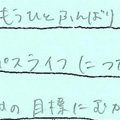 もうひとふんばり
パスライフにつ
の目標にむか